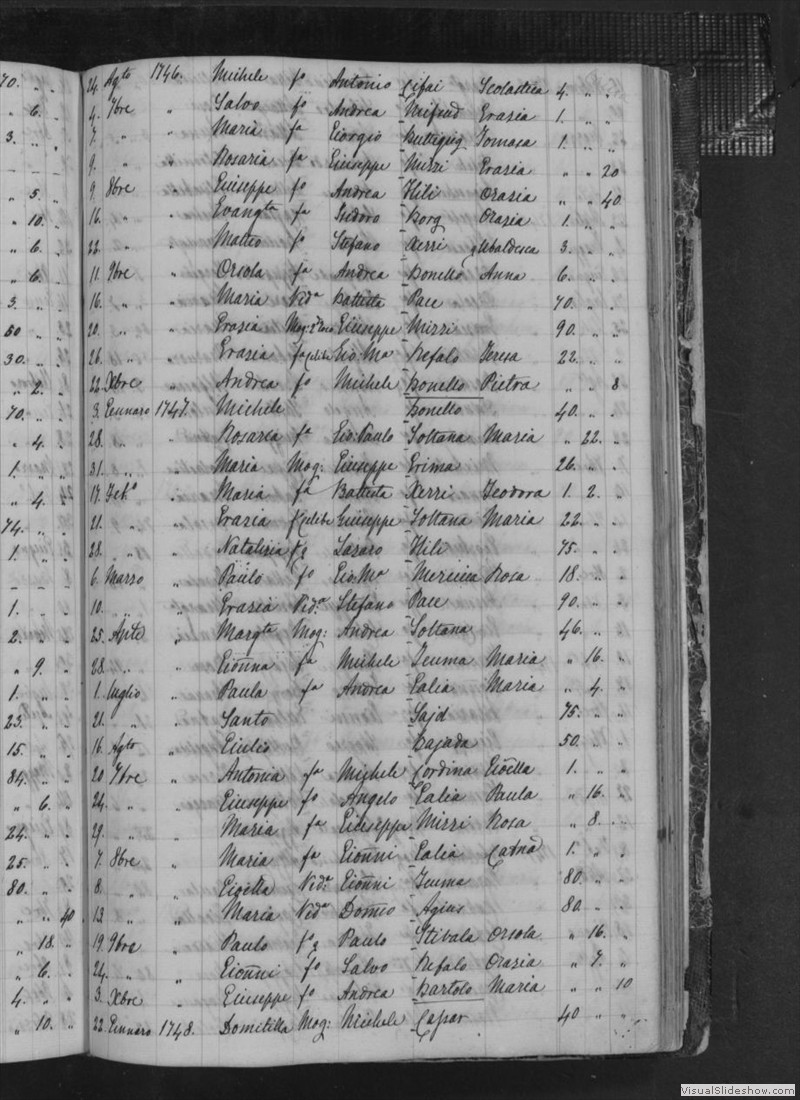 70. „ „ 24. Agto 1746. Michele fo Antonio Cifai Scolastica 4. „ „
„ 6. „ 4. 7bre „ Salvo fo Andrea Mifsud Grazia 1. „ „
3. „ „ 7. „ „ Maria fa Giorgio Buttigieg Tomasa 1. „ „
9. „ „ Rosaria fa Giuseppe Mizzi Grazia „ „ 20
„ 5. „ 9. 8bre „ Giuseppe fo Andrea Hili Orazia „ „ 40.
„ 10. „ 16. „ „ Evangta fa Isidoro Borg Orazia 1. „ „
„ 6. „ 22. „ „ Matteo fo Stefano Xerri Ubaldesca 3. „ „
„ 6. „ 11. 9bre „ Orsola fa Andrea Bonello Anna 6. „ „
3. „ „ 16. „ „ Maria Vida Battista Pace 70. „ „
50 „ „ 20. „ „ Grazia Mog: Giuseppe Mizzi 90. „ „
30. „ „ 26. „ „ Grazia fa celibe Gio:Ma Refalo Teresa 22. „ „
„ 2. „ 22. Xbre „ Andrea fo Michele Bonello Pietra „ „ 8
70. „ „ 3. Gennaro 1747. Michele Bonello 40. „ „
„ 4. „ 28. „ „ Rosaria fa Gio:Paulo Soltana Maria „ 22. „
1. „ „ 31. „ „ Maria Mog: Giuseppe Grima 26. „ „
„ 4. „ 17. Febo „ Maria fa Battista Xerri Teodora 1. 2. „
74. „ „ 21. „ „ Grazia fa celibe Giuseppe Soltana Maria 22. „ „
1. „ „ 28. „ „ Natalizia Lazaro Hili 75. „ „
6. Marzo „ Paulo fo Gio:Ma Mercieca Rosa 18. „ „
1. „ „ 10. „ „ Grazia Vida Stefano Pace 90. „ „
2. „ „ 25. Aple „ Margta Mog: Andrea Soltana 46. „ „
„ 9. „ 28. „ „ Gionna fa Michele Teuma Maria „ 16. „
1. „ „ 1. Luglio „ Paula fa Andrea Galia Maria „ 4. „
23. „ „ 21. „ „ Santo Sajd 75. „ „
15. „ „ 16. Agto „ Giulio Cajada 50. „ „
84. „ „ 20 7bre „ Antonia fa Michele Cordina Gioella 1. „ „
„ 6. „ 24. „ „ Giuseppe fo Angelo Galia Paula „ 16. „
24. „ „ 29. „ „ Maria fa Giuseppe Mizzi Rosa „ 8. „
25. „ „ 7. 8bre „ Maria fa Gionni Galia Catna 1. „ „
80. „ „ 8. „ „ Gioella Vida Gionni Teuma 80. „ „
„ „ 40 13. „ „ Maria Vida Domco Agius 80. „ „
„ 18. „ 19. 9bre „ Paulo fo Paulo Stivala Orsola „ 16. „
„ 6. „ 24. „ „ Gionni fo Salvo Refalo Orazia „ 7. „
4. „ „ 3. Xbre „ Giuseppe fo Andrea Bartolo Maria „ „ 10
„ 10. „ 22. Gennaro 1748. Domitilla Mog: Michele Caspar 40 „ „
VisualSlideshow.com